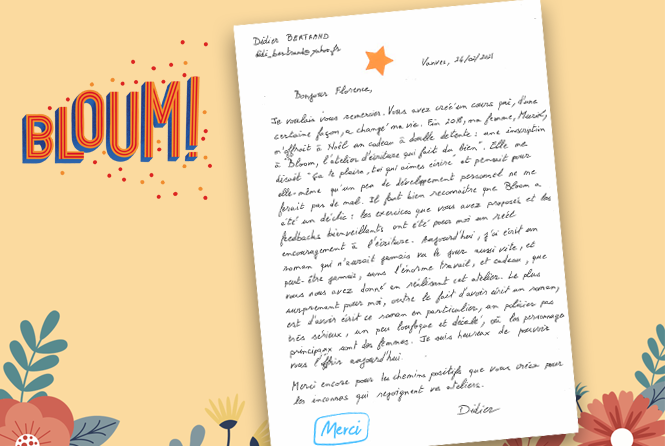 BLOUM!
Didier BERTRAND
didi_bertrand@yahoo.fr
Vanves, 26/02/2021
Bonjour Florence,
Je voulais vous remercier. Vous avez créé un cours qui, d'une
certaine façon, a changé ma vie. Fin 2018, ma femme, Muriel,
m'offrait à Noël un cadeau à double détente : une inscription
à "Bloom, l'atelier d'écriture qui fait du bien". Elle me
disait "Ça te plaira, toi qui aimes écrire" et pensait pour
elle-même qu'un peu de développement personnel ne me
ferait pas de mal. Il faut bien reconnaître que Bloom a
été un déclic : les exercices que vous avez proposés et les
feedbacks bienveillants ont été pour moi un réel
encouragement à l'écriture. Aujourd'hui, j'ai écrit un
roman qui n'aurait jamais vu le jour aussi vite, et
peut-être jamais, sans l'énorme travail, et cadeau, que
vous nous avez donné en réalisant cet atelier. Le plus
surprenant pour moi, outre le fait d'avoir écrit un roman,
est d'avoir écrit ce roman en particulier, un policier pas
très sérieux, un peu loufoque et décalé, où les personnages
principaux sont des femmes. Je suis heureux de pouvoir
vous l'offrir aujourd'hui.
Merci encore pour les chemins positifs que vous créez pour
les inconnus qui rejoignent vos ateliers.
Didier
Merci